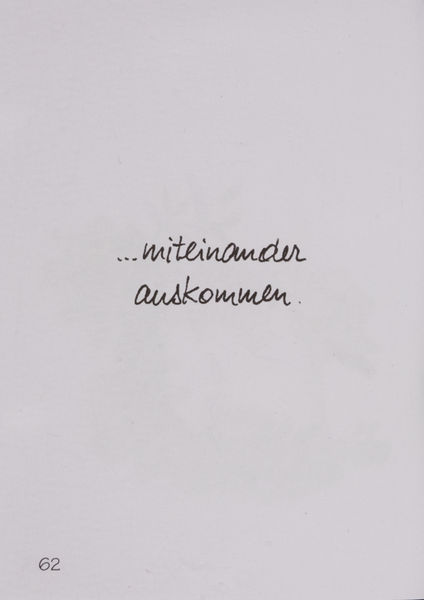 ...miteinander
auskommen.
62